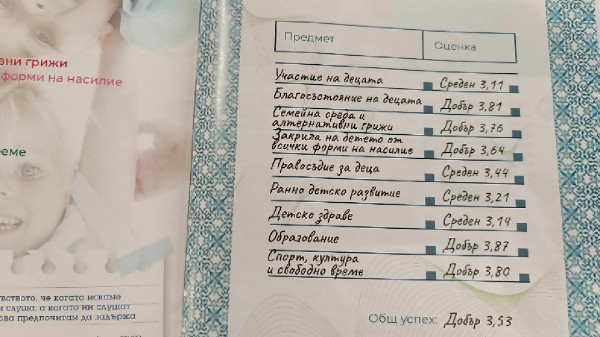 вни грижи
форми на насилие
еме
вството, че когато искаме
и слуша, а когато ни слушат
ова предпочитам да задържа
Предмет Оценка
Участие на децата Среден 3,11
Благосъстояние на децата Добър 3,81
Семейна среда и
алтернативни грижи Добър 3,76
Закрила на детето от
всички форми на насилие Добър 3,64
Правосъдие за деца Среден 3,44
Ранно детско развитие Среден 3,21
Детско здраве Среден 3,14
Образование Добър 3,87
Спорт, култура
и свободно време Добър 3,80
Общ успех: Добър 3,53